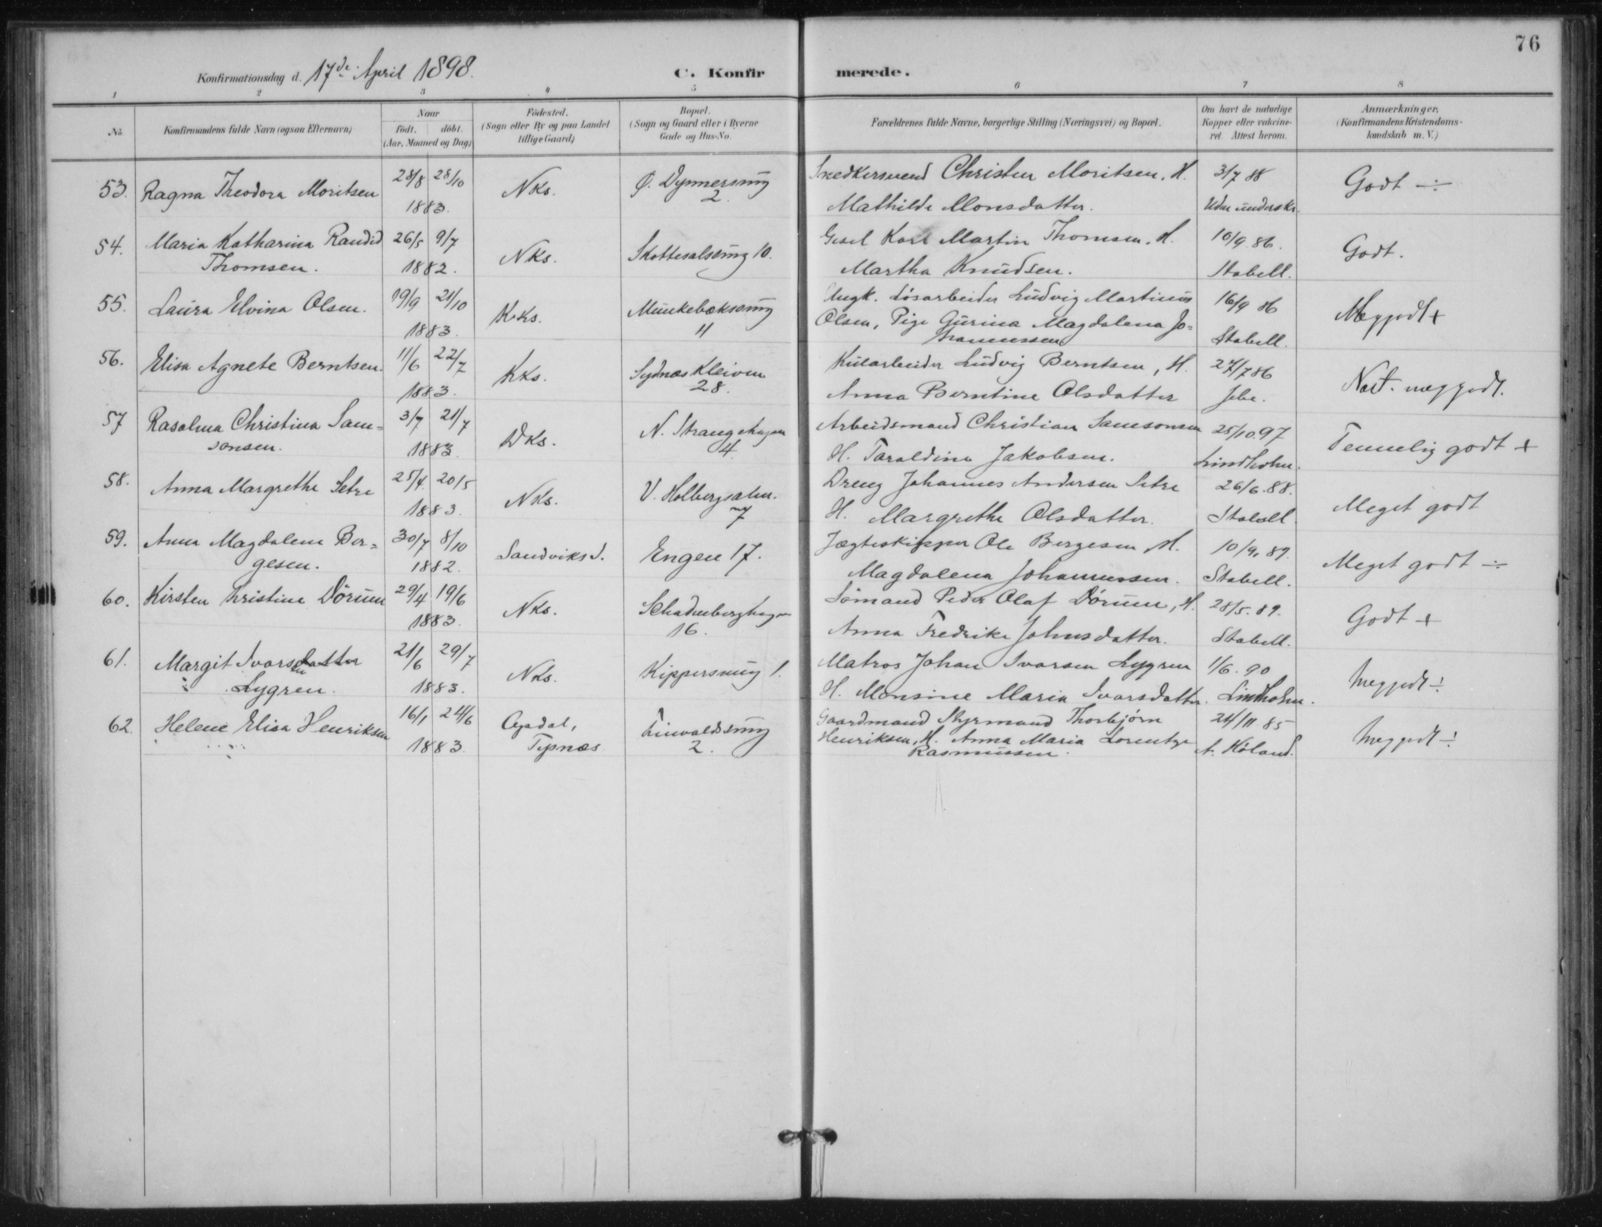 76
Konfirmationsdag d. 17de April 1898.
C. Konfirmerede.
1 2 3 4 5 6 7 8
No.
Konfirmandens fulde Navn (ogsaa Efternavn)
Naar
født. døbt.
(Aar, Maaned og Dag)
Fødested.
(Sogn eller By og paa Landet
tillige Gaard)
Bopæl.
(Sogn og Gaard eller i Byerne
Gade og Hus-No.
Forældrenes fulde Navne, borgerlige Stilling (Næringsvei) og Bopæl.
Om havt de naturlige
Kopper eller vakcine-
ret. Attest herom.
Anmærkninger.
(Konfirmandens Kristendoms-
kundskab m. V.)
53. Ragna Theodora Moritsen 28/8 28/10 1883. Nks. Ø. Dynnersmug 2.
Snedkersvend Christen Moritsen, H. 3/7 88 Godt ÷
Mathilde Monsdatter. Uden underskr.
54. Maria Katharina Randid 26/5 9/7 Nks. Skottesalsmug 10.
Thomsen. 1882.
Gesel Karl Martin Thomsen, H. 10/9 86. Godt.
Martha Knudsen. Stabell.
55. Laura Elvina Olsen. 19/9 21/10 1883. Kks. Munkebæksmug 11
Ungk. Løsarbeider Ludvig Martinus 16/9 86 Meggodt +
Olsen, Pige Gurina Magdalena Jo-
hannessen Stabell.
56. Elisa Agnete Berntsen. 11/6 22/7 1883. Kks. Sydnæskleiven 28.
Kularbeider Ludvig Berntsen, H. 27/7 86 Næst. meggodt.
Anna Berntine Olsdatter Jebe.
57 Rasalma Christina Sam- 3/7 21/7 Dks. N. Strangehagen 4
sonsen. 1883.
Arbeidsmand Christian Samsonsen 25/10 97 Temmelig godt +
H. Taraldine Jakobsen. Lindholm.
58. Anna Margrethe Setre 25/4 20/5 1883. Nks. V. Holbergsalm. 7
Dreng Johannes Andersen Setre 26/6. 88. Meget godt
H. Margrethe Olsdatter. Stabell.
59. Anna Magdalena Bør- 30/7 8/10 Sandviks S. Engen 17.
gesen. 1882.
Jægteskipper Ole Børgesen, H. 10/9. 89. Meget godt ÷
Magdalena Johannessen. Stabell.
60. Kirsten Kristine Dörum 29/4 19/6 1883. Nks. Schadenberghagen 16.
Sømand Peder Olaf Dörum, H. 28/5. 89. Godt +
Anna Fredrike Johnsdatter. Stabell.
61. Margit Ivarsdatter 21/6 29/7 Nks. Kippersmug 1.
Lygren. 1883.
Matros Johan Ivarsen Lygren 1/6. 90 Meggodt ÷
H. Monsine Maria Ivarsdatter. Lindholm.
62. Helene Elisa Henriksen 16/1 24/6 1883. Tysnæs Finvaldsmug 2.
Gaardmand Styrmand Thorbjørn 24/11 85 Meggodt ÷
Henriksen, H. Anna Maria Lorentze
Rasmussen. A. Höland.